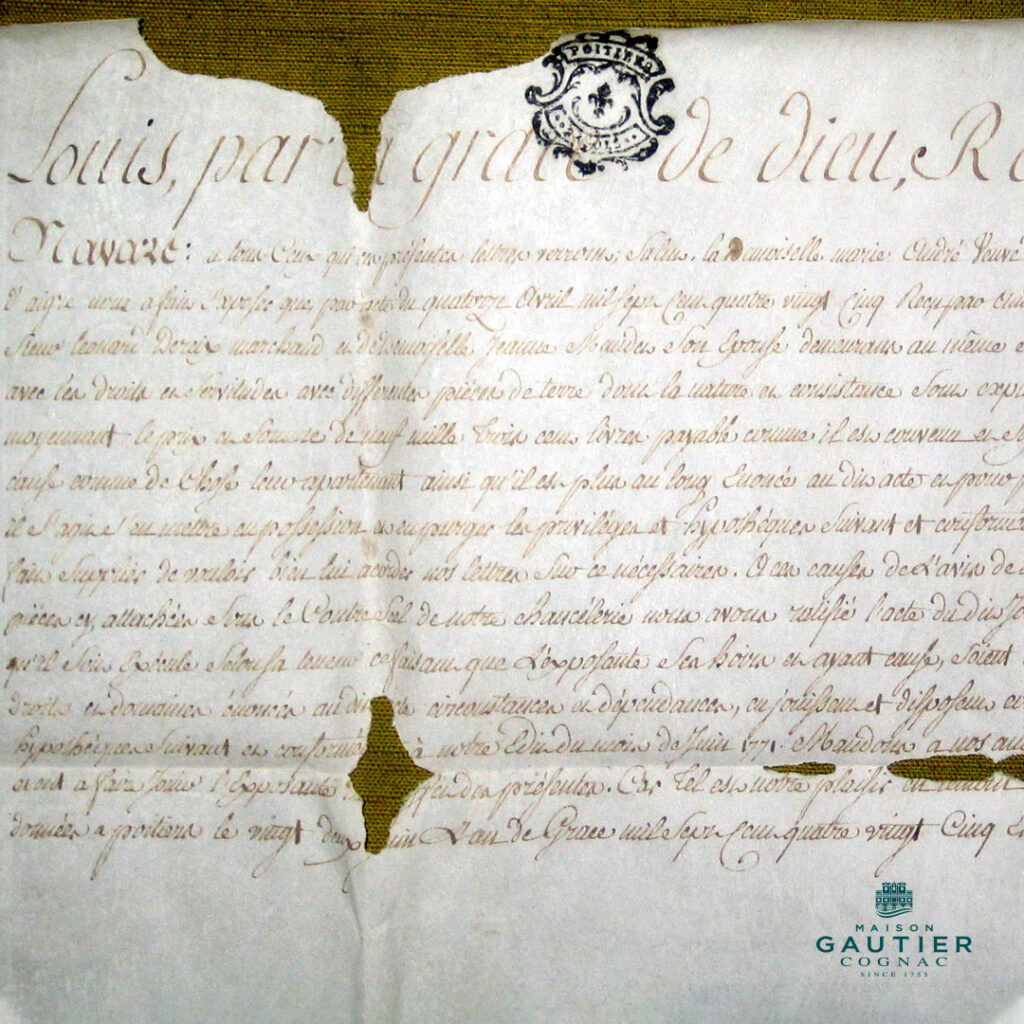 POITIERS
Louis, par la grace de dieu, R
Navare: a tous Ceux qui ces présentes lettres verrons, Salut. la Demoiselle marie André Veuve
d'aigre nous a fait Exposer que par acte du quatorze Avril mil Sept Cent quatre vingt Cinq Recu par
Sieur Leonard marchand et demoiselle Jeanne Son Epouse demeurant au même
avec les droits et Servitudes avec differentes pièces de terre dont la nature et consistance Sont
moyennant le prix et Somme de neuf mille Trois cent livres payable comme il est convenu
cause comme de Chose leur apartenant ainsi qu'il est plus au long Enoncé au dit acte et pour
il S'agit S'en mettre en possession et en purger les privilèges et hypothèques Suivant et
fait Supplier de vouloir bien lui acorder nos lettres Sur ce nécessaires. A ces causes de L'avis de
pièces cy attachées Sous le Contre Scel de notre chancélerie nous avons ratifié l'acte du dit
qu'il Soit Exécuté Selon Sa teneur ce faisant que L'exposante Ses hoirs et ayant cause, Soient
Droits et domaines énoncés au dit circonstances et dépendances, en jouissent et disposent
hypothèques Suivant et à notre Edit du mois de Juin 1771. Mandons a nos
a faire Jouir l'Exposante des présentes. Car Tel est notre plaisir en temoin
données a poitiers le vingt deux L'an de Grace mil Sept Cent quatre vingt Cinq
MAISON
GAUTIER
COGNAC
SINCE 1755